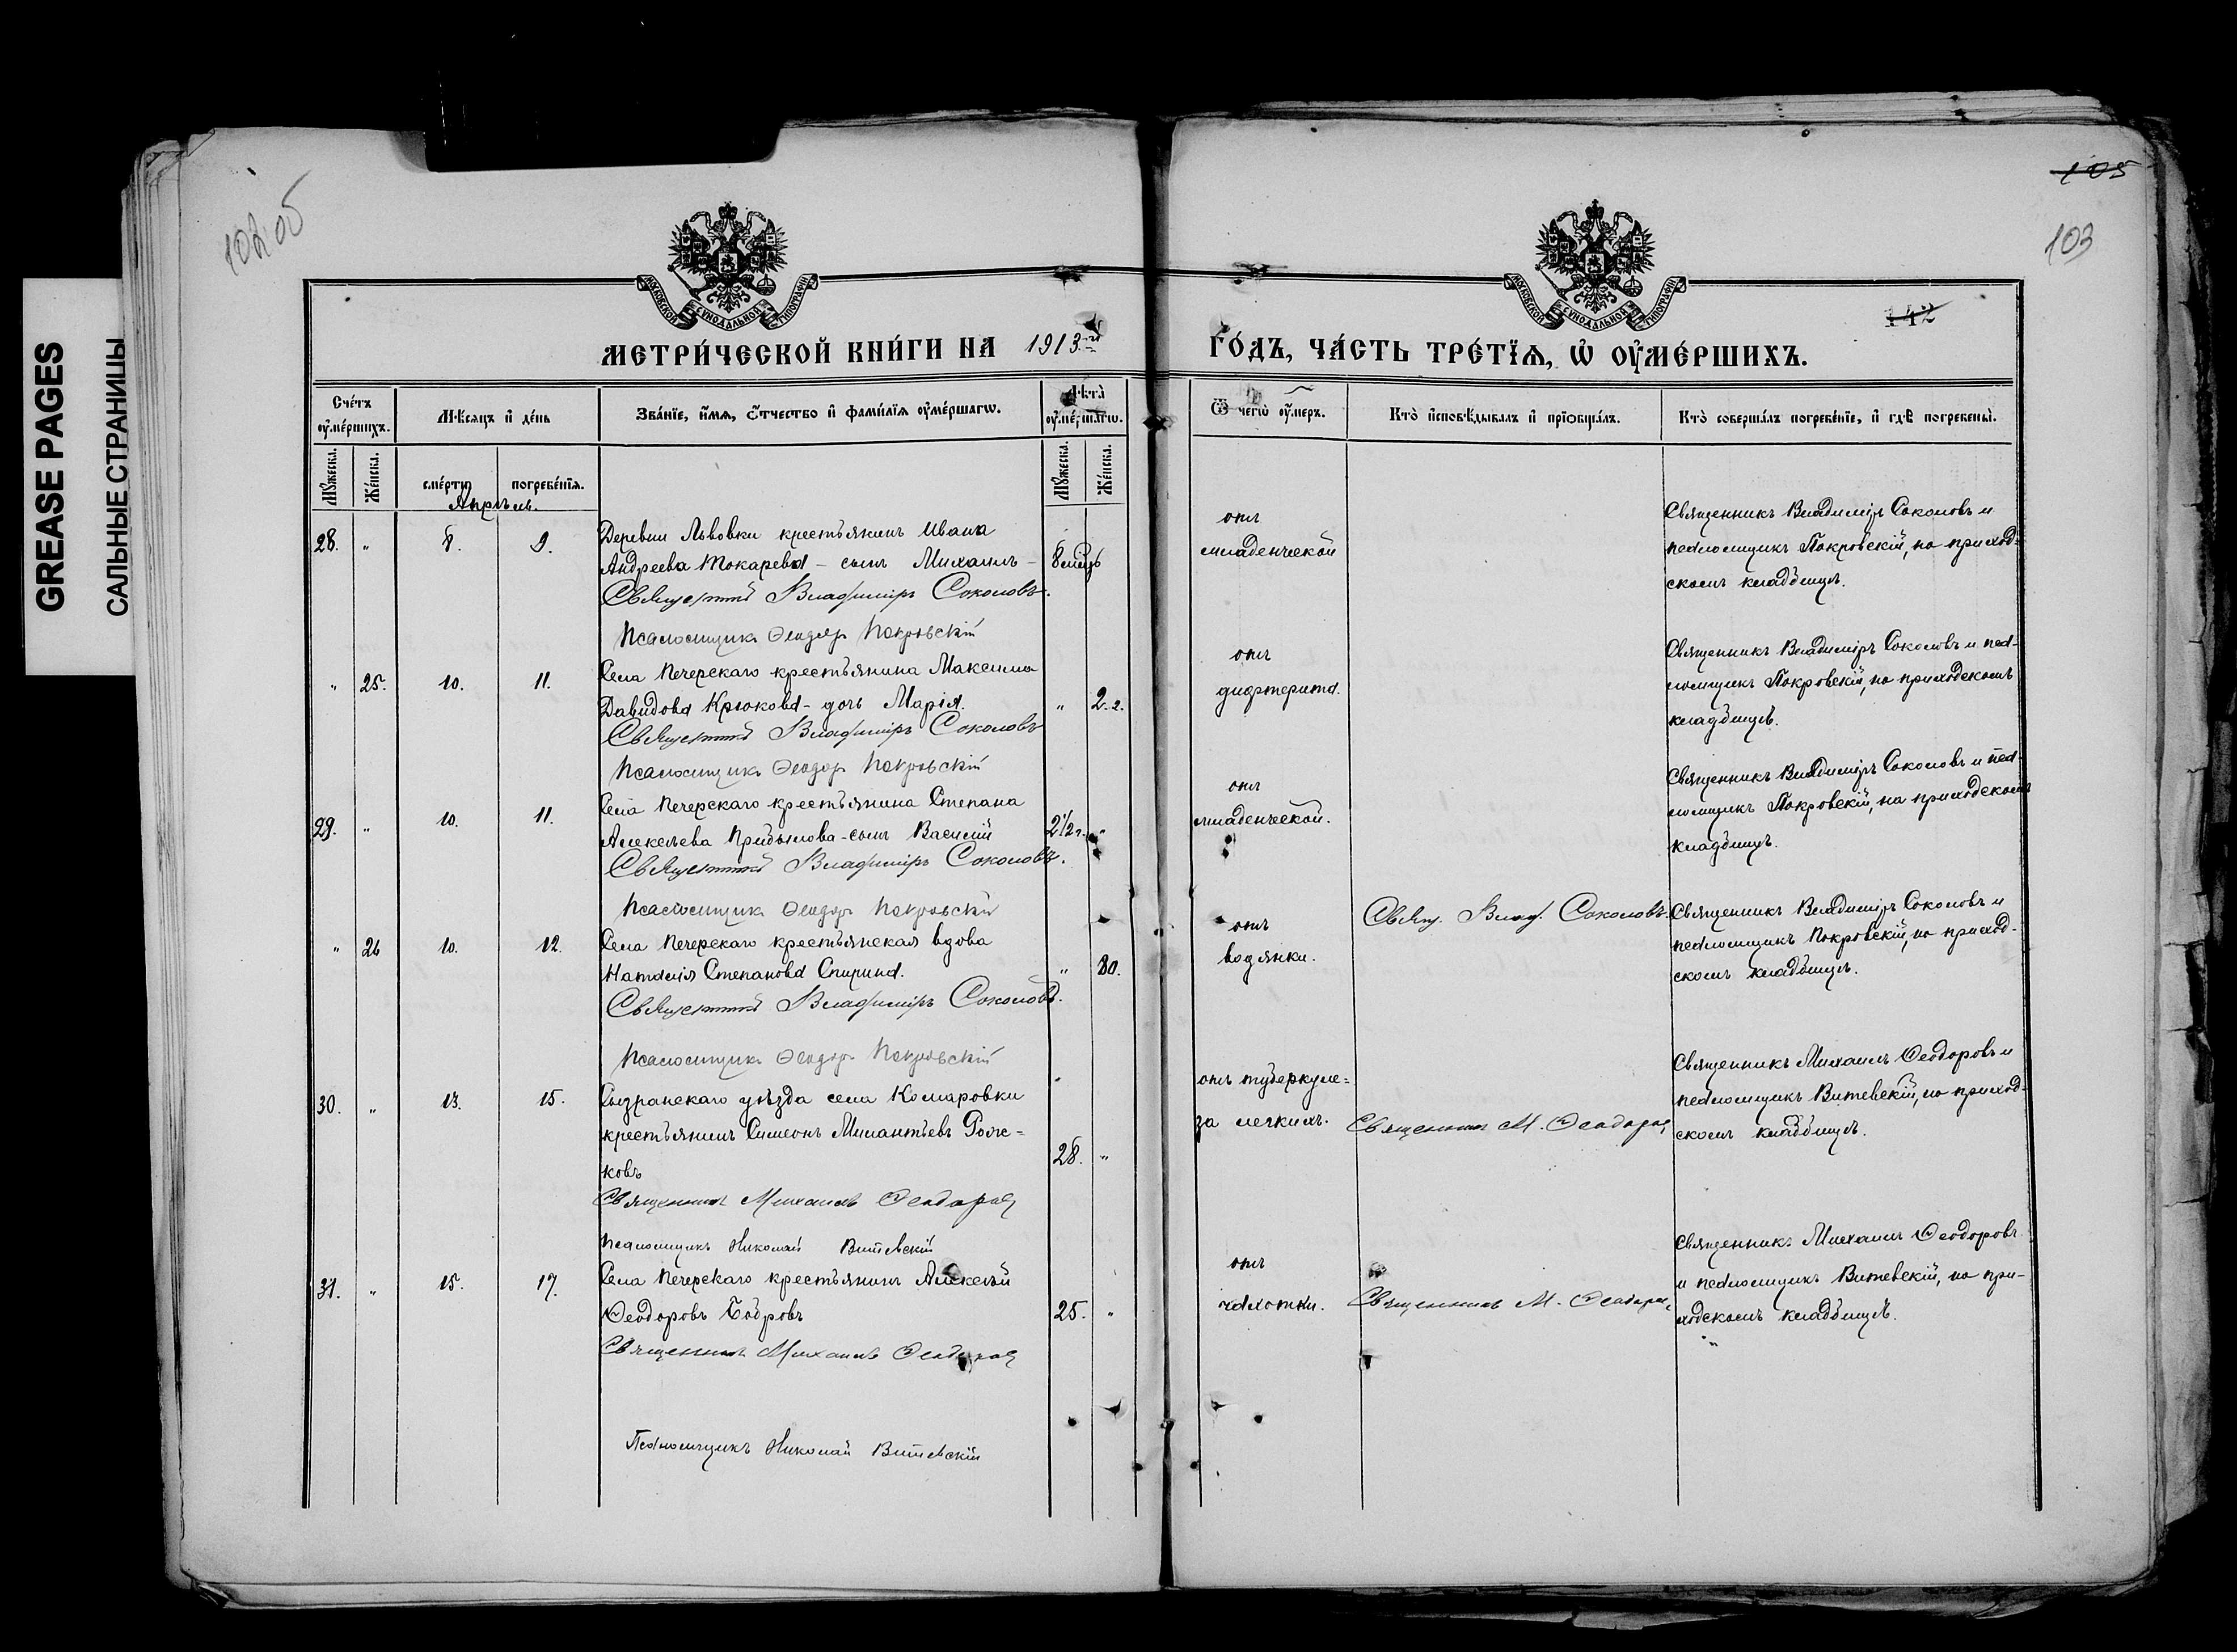 GREASE PAGES
САЛЬНЫЕ СТРАНИЦЫ
102 об
105
103
142
МОСКОВСКОЙ СѴНОДАЛЬНОЙ ТИПОГРАФІИ
МОСКОВСКОЙ СѴНОДАЛЬНОЙ ТИПОГРАФІИ
МЕТРИ́ЧЕСКОЙ КНИ́ГИ НА 1913 й
ГО́ДЪ, ЧА́СТЬ ТРЕ́ТЇѦ, Ѡ҆ ОУ҆МЕ́РШИХЪ.
Сче́тъ оу҆ме́ршихъ.
Мѣ́сѧцъ и҆ де́нь
Зва́нїе, и҆́мѧ, ѻ҆́тчество и҆ фамі́лїѧ оу҆ме́ршагѡ.
Лѣ́та оу҆ме́ршагѡ.
Ѿ чегѡ̀ оу҆́меръ.
Кто̀ и҆сповѣ́дывалъ и҆ прїѻбща́лъ.
Кто̀ соверша́лъ погребе́нїе, и҆ гдѣ̀ погребены̀.
Мꙋ́жеска.
Же́нска.
сме́рти
погребе́нїѧ.
Мꙋ́жеска.
Же́нска.
Апрѣль.
28. " 8. 9. Деревни Львовки крестьянинъ Ивана
Андреева Токарева - сынъ Михаилъ - 8 міцъ
Священникъ Владиміръ Соколовъ.
Псаломщикъ Ѳеодоръ Покровскій
отъ
младенческой
Священникъ Владиміръ Соколовъ и
псаломщикъ Покровскій, на приход-
скомъ кладбищѣ.
" 25. 10. 11. Села Печерскаго крестьянина Максима
Давидова Крюкова - дочь Марія. " 2 г.
Священникъ Владиміръ Соколовъ
Псаломщикъ Ѳеодоръ Покровскій
отъ
дифтерита.
Священникъ Владиміръ Соколовъ и пса-
ломщикъ Покровскій, на приходскомъ
кладбищѣ.
29. " 10. 11. Села Печерскаго крестьянина Степана
Алексѣева Прибылова - сынъ Василій 2 1/2 г. "
Священникъ Владиміръ Соколовъ.
Псаломщикъ Ѳеодоръ Покровскій
отъ
младенческой.
Священникъ Владиміръ Соколовъ и пса-
ломщикъ Покровскій, на приходскомъ
кладбищѣ.
" 26 10. 12. Села Печерскаго крестьянская вдова
Наталія Степанова Спирина. " 80.
Священникъ Владиміръ Соколовъ.
Псаломщикъ Ѳеодоръ Покровскій
отъ
водянки.
Свящ. Влад. Соколовъ.
Священникъ Владиміръ Соколовъ и
псаломщикъ Покровскій, на приход-
скомъ кладбищѣ.
30. " 13. 15. Сызранскаго уѣзда села Комаровки
крестьянинъ Симеонъ Милантьевъ Рож-
ковъ 28. "
Священникъ Михаилъ Ѳеодоровъ
Псаломщикъ Николай Витевскій
отъ туберкуле-
за легкихъ.
Священникъ М. Ѳеодоровъ
Священникъ Михаилъ Ѳеодоровъ и
псаломщикъ Витевскій, на приход-
скомъ кладбищѣ.
31. " 15. 17. Села Печерскаго крестьянинъ Алексѣй
Ѳеодоровъ Бобровъ 25. "
Священникъ Михаилъ Ѳеодоровъ
Псаломщикъ Николай Витевскій
отъ
чахотки.
Священникъ М. Ѳеодоровъ
Священникъ Михаилъ Ѳеодоровъ
и псаломщикъ Витевскій, на при-
ходскомъ кладбищѣ.